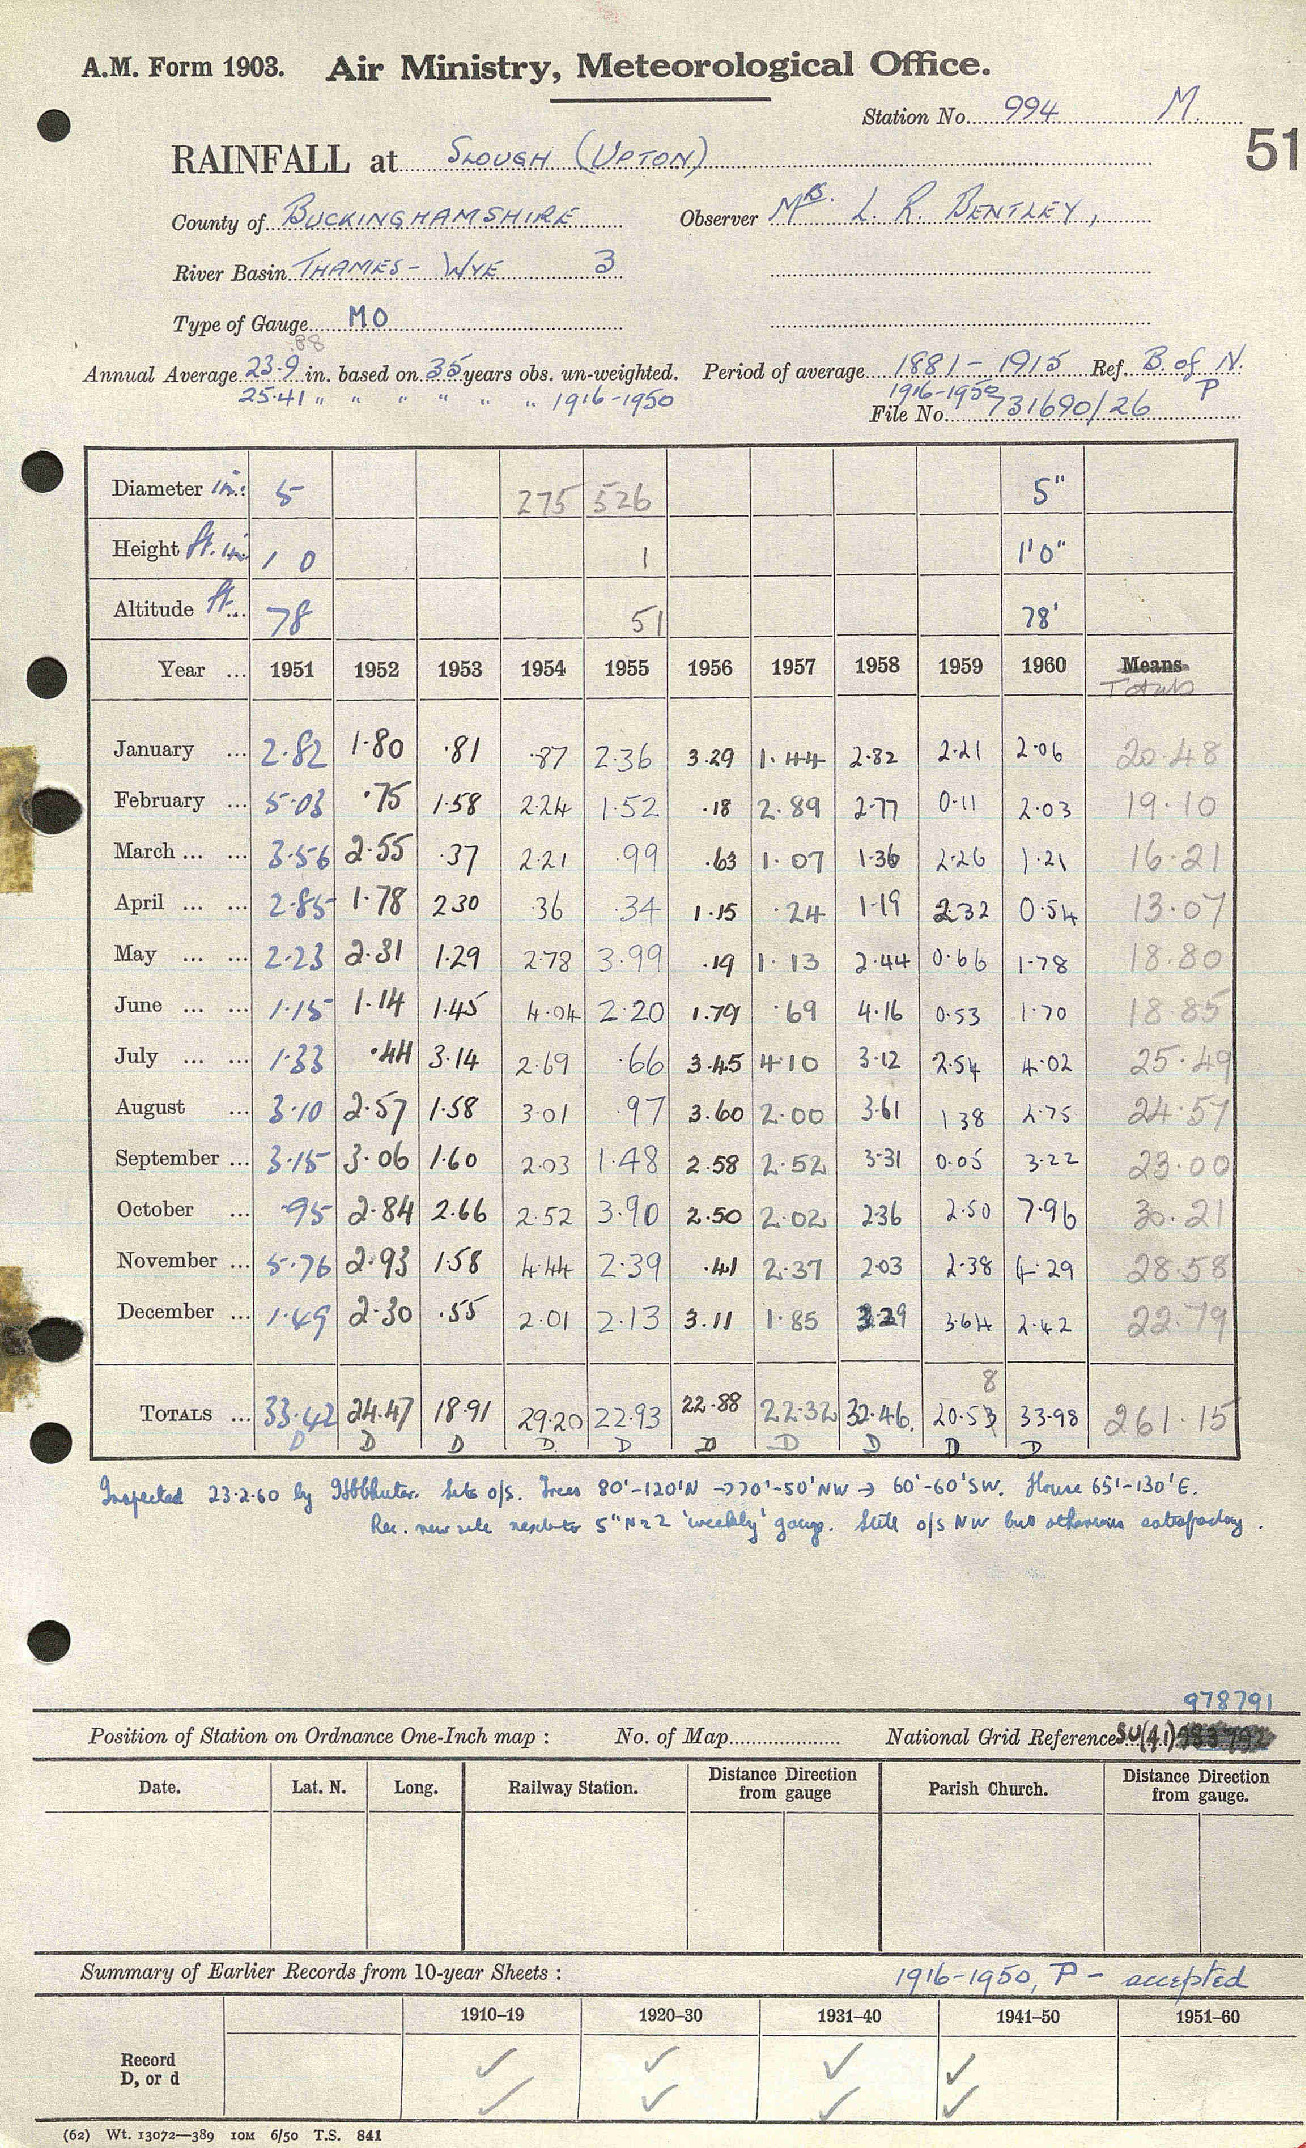 A.M. Form 1903. Air Ministry, Meteorological Office.
Station No. 994 M.
51
RAINFALL at SLOUGH (UPTON)
County of BUCKINGHAMSHIRE Observer MRS. L. R. BENTLEY,
River Basin THAMES - WYE 3
Type of Gauge MO
.88
Annual Average 23.9 in. based on 35 years obs. un-weighted. Period of average 1881 - 1915 Ref. B. of N.
25.41 " " " " " " 1916-1950 1916-1950 P
File No. 731690/26
Diameter in. 5 275 526 5"
Height ft. in. 1 0 1 1'0"
Altitude ft. 78 51 78'
Year ... 1951 1952 1953 1954 1955 1956 1957 1958 1959 1960 Means
Totals
January ... 2.82 1.80 .81 .87 2.36 3.29 1.44 2.82 2.21 2.06 20.48
February ... 5.03 .75 1.58 2.24 1.52 .18 2.89 2.77 0.11 2.03 19.10
March ... ... 3.56 2.55 .37 2.21 .99 .63 1.07 1.36 2.26 1.21 16.21
April ... ... 2.85 1.78 2.30 .36 .34 1.15 .24 1.19 2.32 0.54 13.07
May ... ... 2.23 2.31 1.29 2.78 3.99 .19 1.13 2.44 0.66 1.78 18.80
June ... ... 1.15 1.14 1.45 4.04 2.20 1.79 .69 4.16 0.53 1.70 18.85
July ... ... 1.33 .44 3.14 2.69 .66 3.45 4.10 3.12 2.54 4.02 25.49
August ... 3.10 2.57 1.58 3.01 .97 3.60 2.00 3.61 1.38 2.75 24.57
September ... 3.15 3.06 1.60 2.03 1.48 2.58 2.52 3.31 0.05 3.22 23.00
October ... .95 2.84 2.66 2.52 3.90 2.50 2.02 2.36 2.50 7.96 30.21
November ... 5.76 2.93 1.58 4.44 2.39 .41 2.37 2.03 2.38 4.29 28.58
December ... 1.49 2.30 .55 2.01 2.13 3.11 1.85 3.29 3.64 2.42 22.79
8
TOTALS ... 33.42 24.47 18.91 29.20 22.93 22.88 22.32 32.46 20.53 33.98 261.15
D D D D D D D D D D
Inspected 23.2.60 by o/s. Trees 80'-120'N → 70'-50'NW → 60'-60'SW. House 65'-130'E.
Rec. new site next to 5" No 2 'weekly' gauge. Still o/s NW but otherwise satisfactory.
978791
Position of Station on Ordnance One-Inch map : No. of Map National Grid Reference SU(41) 983792
Date. Lat. N. Long. Railway Station. Distance Direction from gauge Parish Church. Distance Direction from gauge.
Summary of Earlier Records from 10-year Sheets : 1916-1950, P - accepted
1910-19 1920-30 1931-40 1941-50 1951-60
Record ✓ ✓ ✓ ✓
D, or d ✓ ✓ ✓ ✓
(62) Wt. 13072—389 10M 6/50 T.S. 841